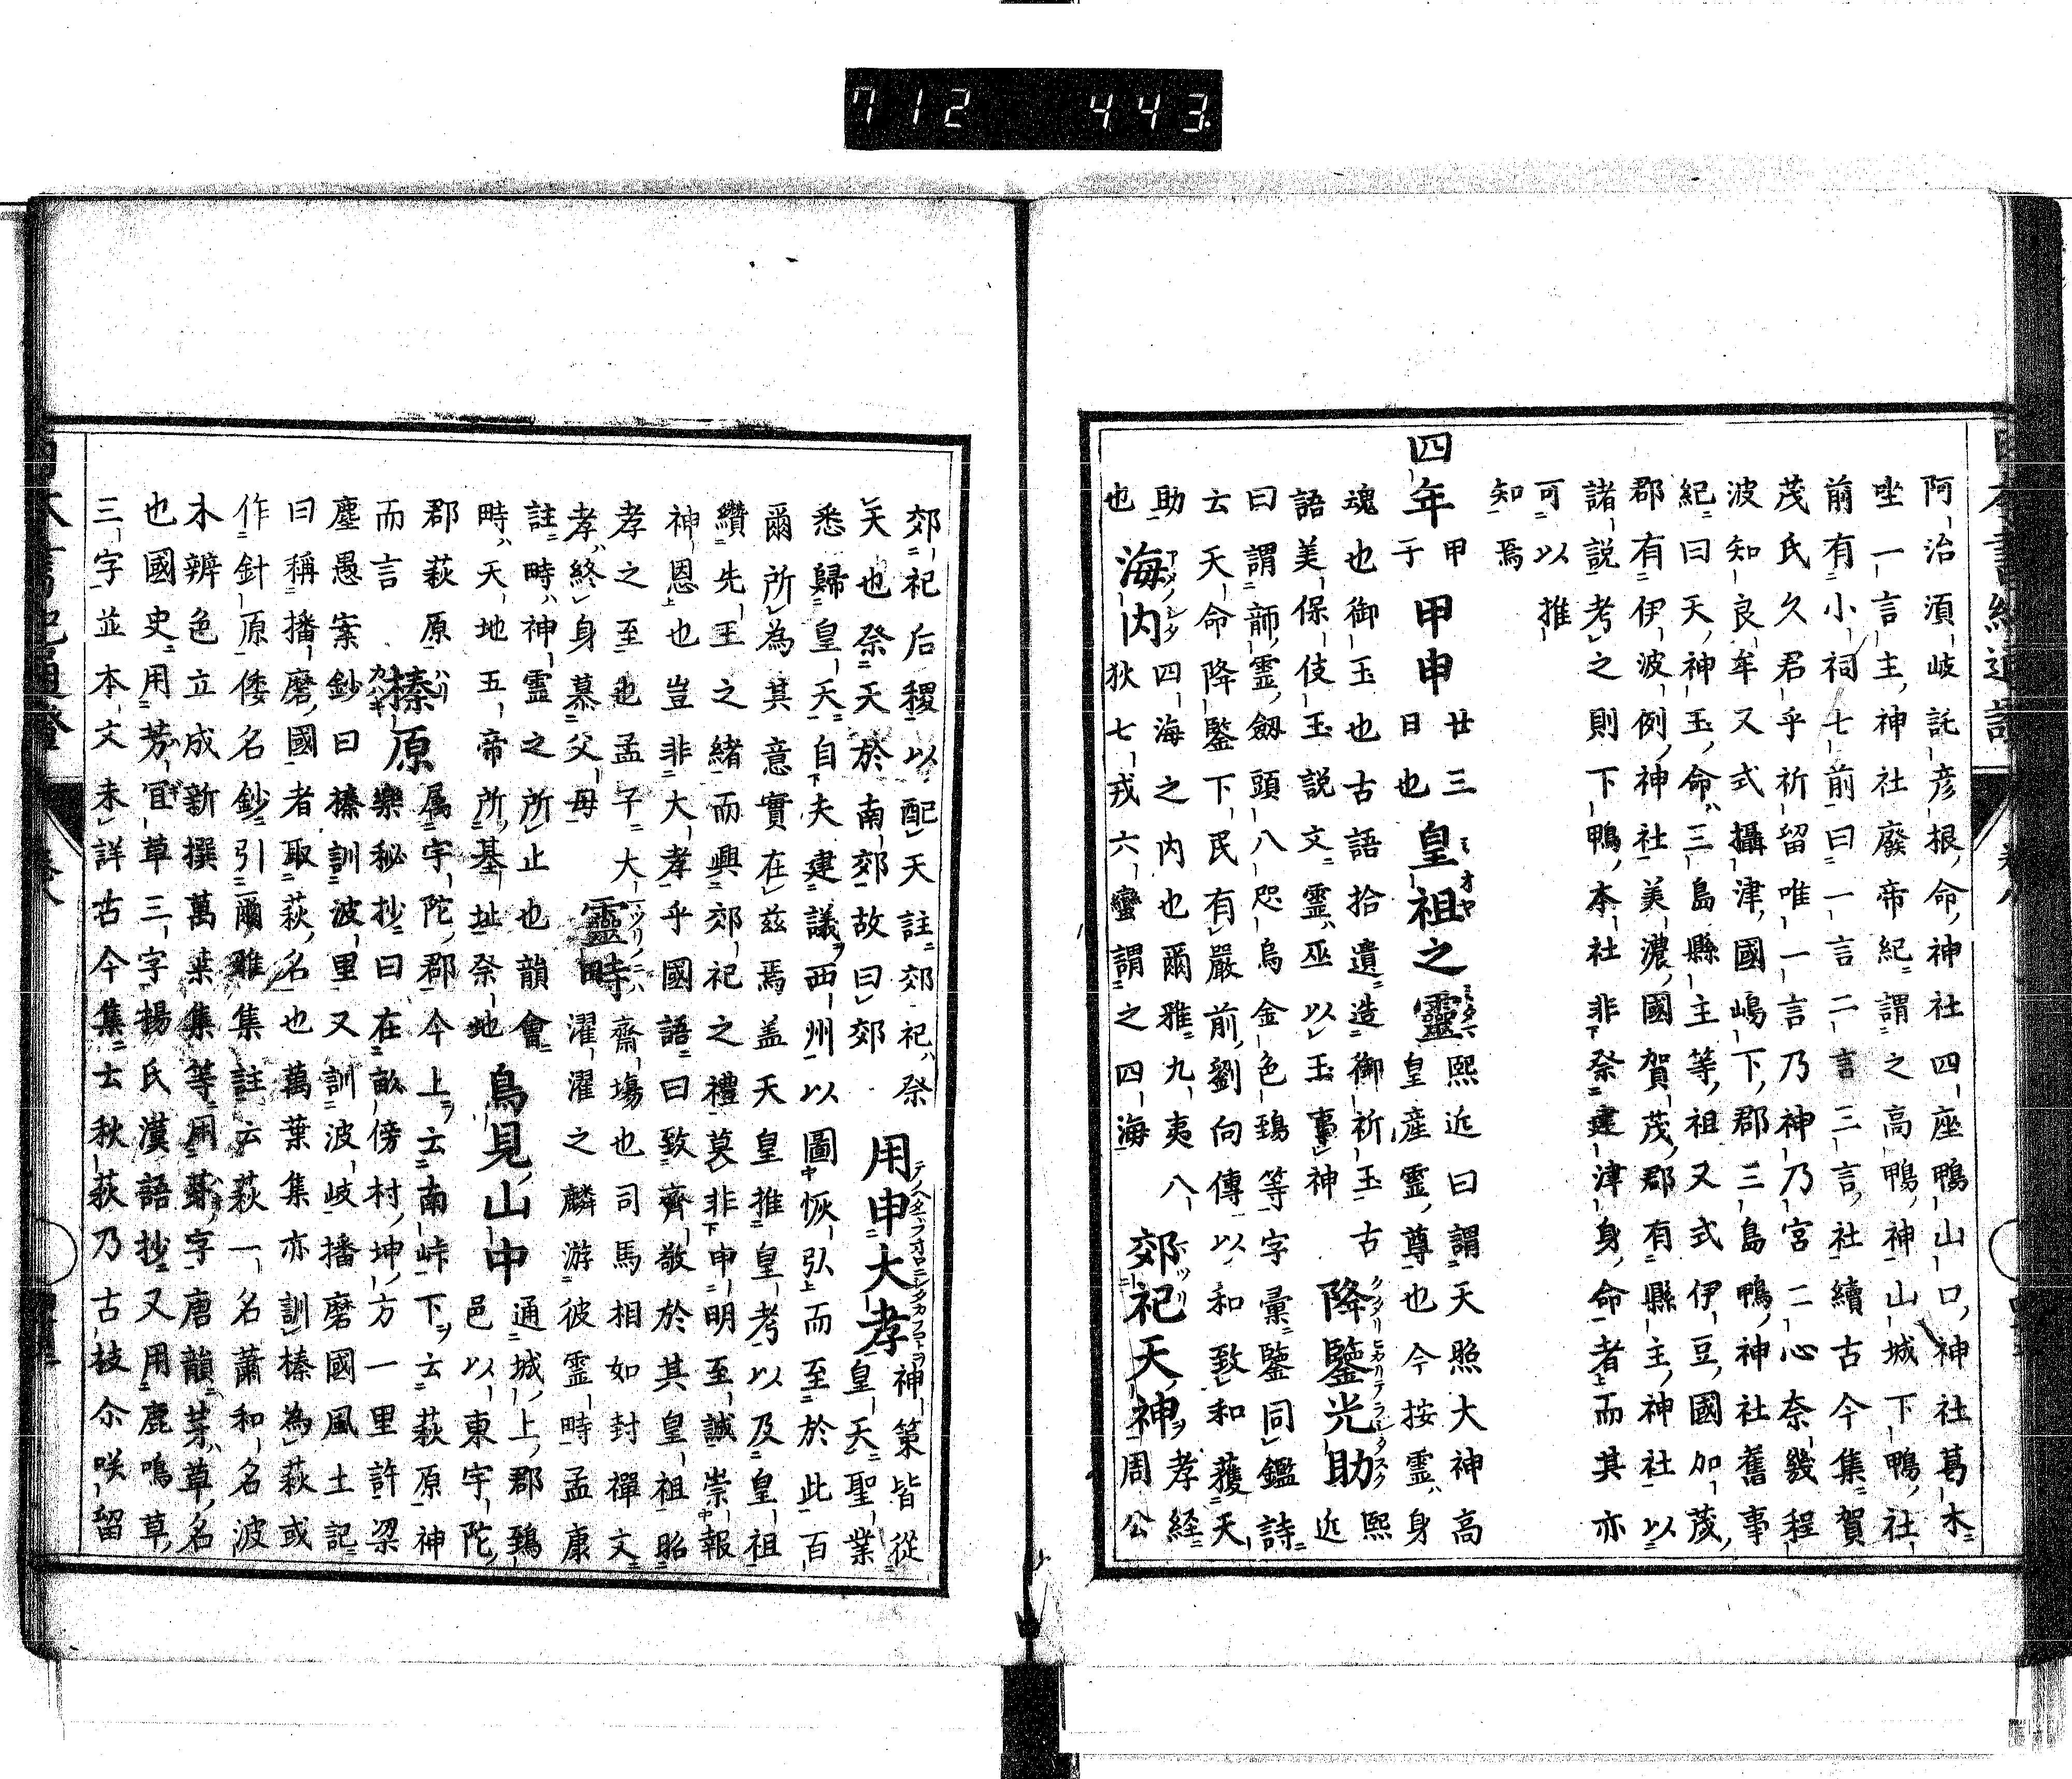 712 443.
阿治湏岐託彦根命神社四座鴨山口神社葛木
坐一言主神社廢帝紀謂之高鴨神山城下鴨社
前有小祠七前曰一言二言三言社續古今集賀
茂氏久君乎祈留唯一言乃神乃宮二心奈幾程
波知良牟又式攝津國嶋下郡三島鴨神社舊事
紀曰天神玉命三島縣主等祖又式伊豆國加茂
郡有伊波例神社美濃國賀茂郡有縣主神社以
諸說考之則下鴨本社非祭建津身命者而其亦
可以推
知焉
四年甲于甲申廿三日也皇祖之靈熙近曰謂天照大神高皇産靈尊也今按靈身
魂也御玉也古語拾遺造御祈玉古
語美保伎玉説文靈巫以玉事神降鑒光助熙近
曰謂韴靈劔頭八咫烏金色鵄等字彙鑒同鑑詩
云天命降鑒下民有嚴前劉向傳以和致和獲天
助海内四海之内也爾雅九夷八
也狄七戎六蠻謂之四海郊祀天神孝経周公
郊祀后稷以配天註郊祀祭
天也祭天於南郊故曰郊用申大孝神策皆從皇天聖業
悉歸皇天自夫建議西州以圖恢弘而至於此百
爾所為其意實在茲焉盖天皇推皇考以及皇祖
纘先王之緒而興郊祀之禮莫非申明至誠崇報
神恩也豈非大孝乎國語曰致齊敬於其皇祖昭
孝之至也孟子大
孝終身慕父母靈畤齋塲也司馬相如封禪文濯濯之麟游彼霊畤孟康
註畤神霊之所止也韻會
畤天地五帝所基址祭地鳥見山中通城上郡鵄邑以東宇陀
郡萩原
而言榛原属宇陀郡今上云南峠下云萩原神樂秘抄曰在畝傍村坤方一里許梁
塵愚案鈔曰榛訓波里又訓波岐播磨國風土記
曰稱播磨國者取萩名也萬葉集亦訓榛為萩或
作針原倭名鈔引爾雅集註云萩一名蕭和名波
木辨色立成新撰萬葉集等用芽字唐韻芽草名
也國史用芳宜草三字楊氏漢語抄又用鹿鳴草
三字並本文未詳古今集士秋萩乃古枝尒咲留